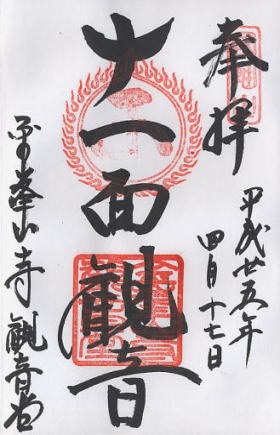 奉拝
平成廿五年
四月十七日
十一面観音
峯山寺観音堂